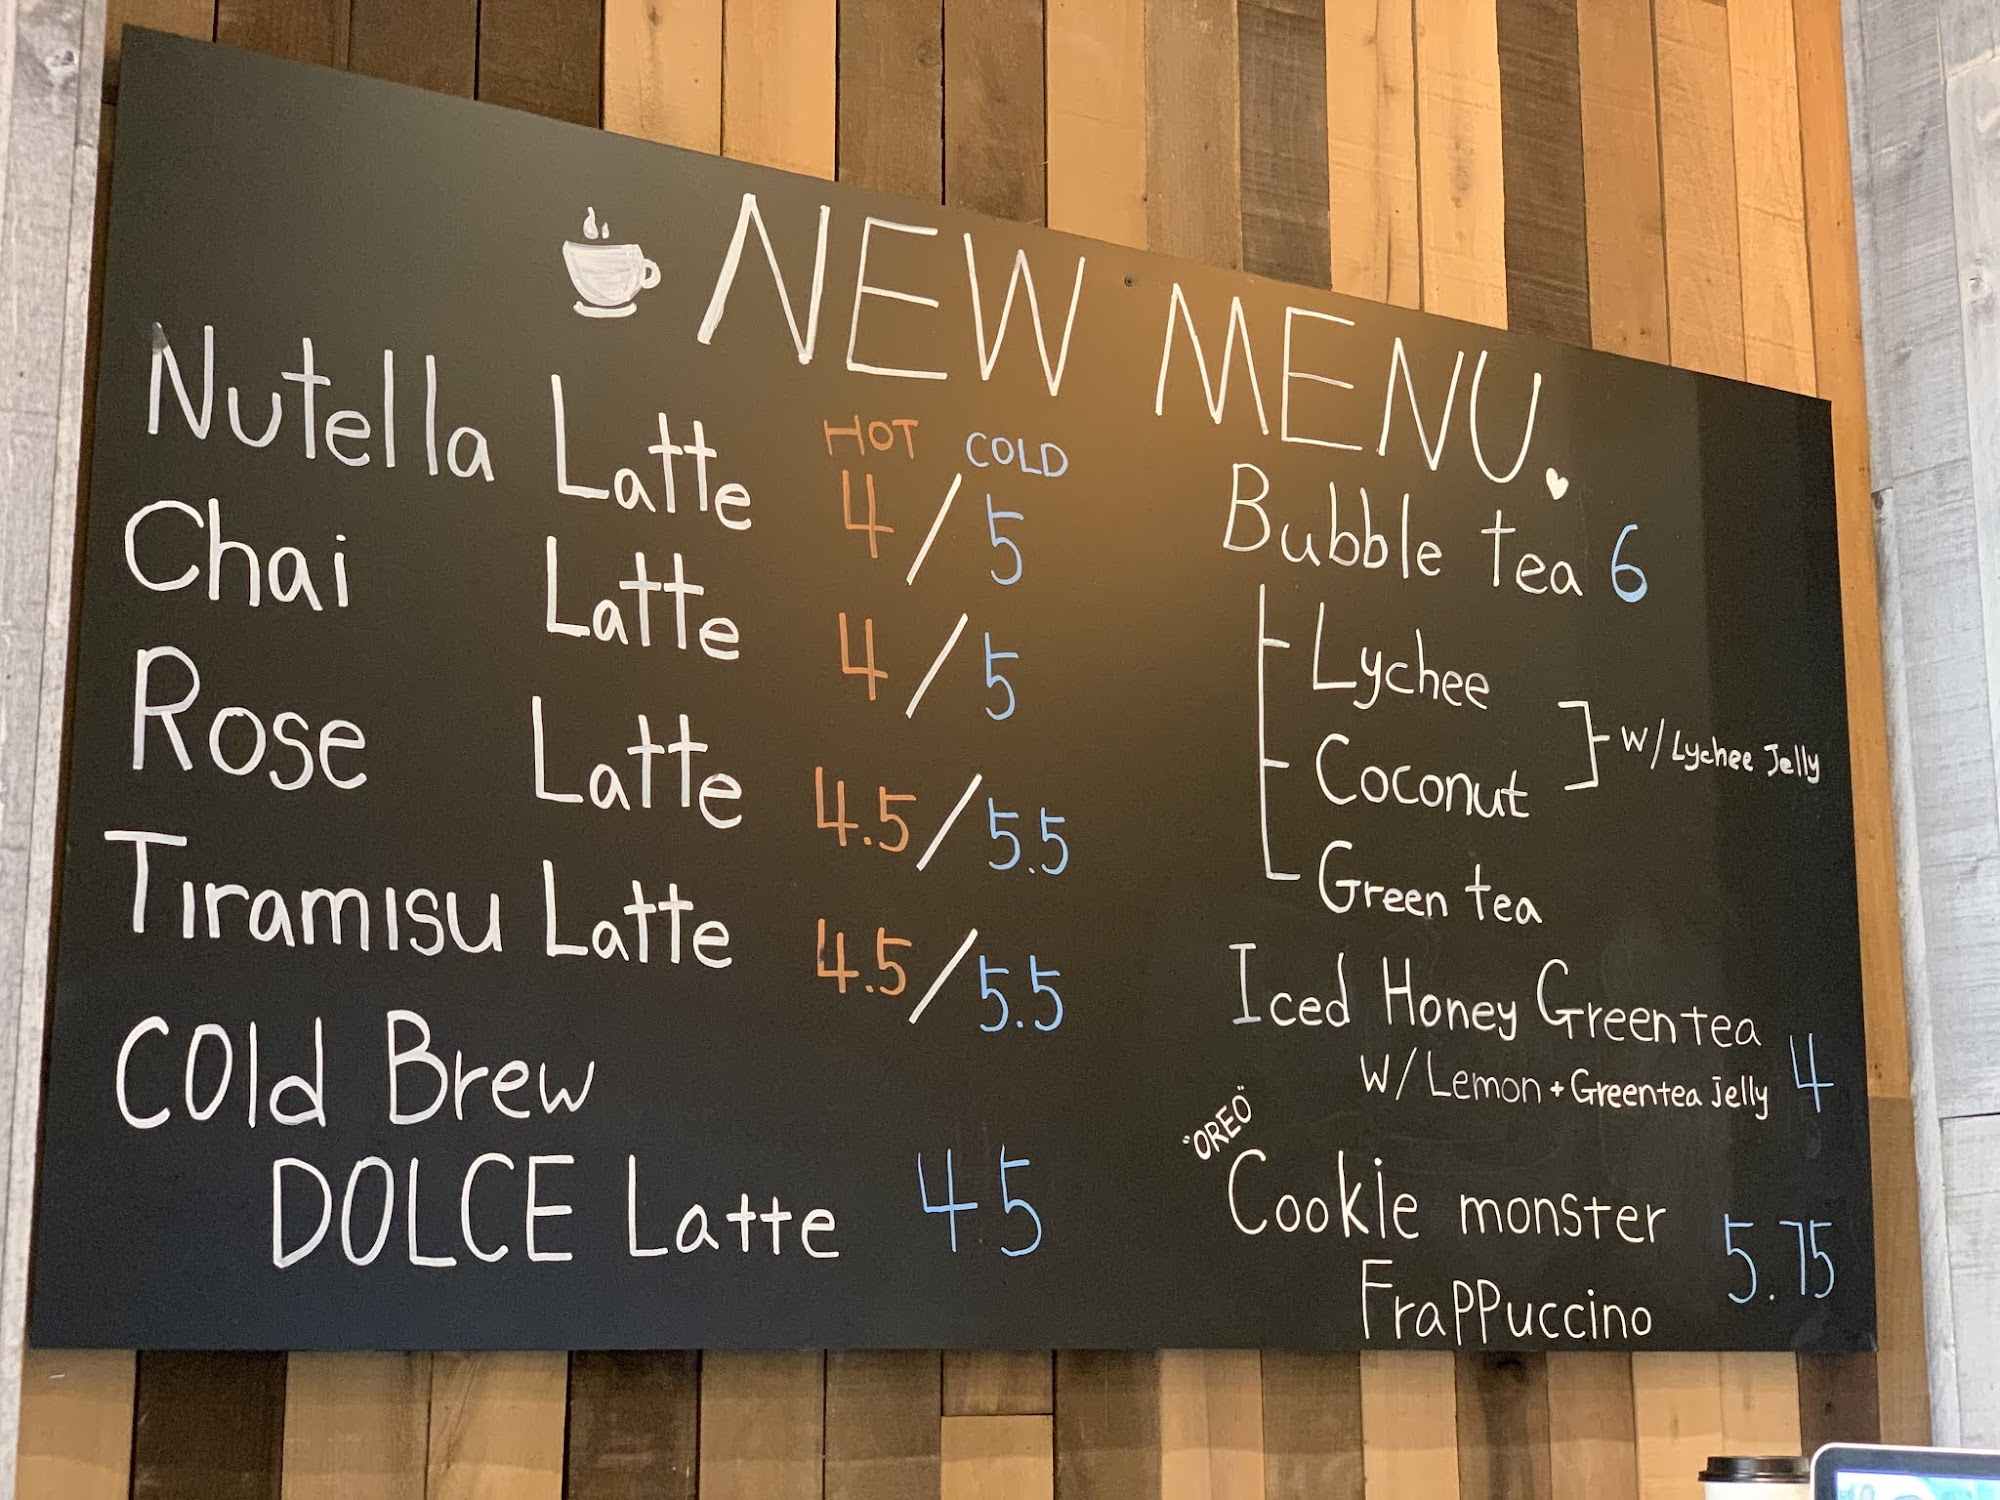 NEW MENU.
HOT COLD
Nutella Latte 4/5
Chai Latte 4/5
Rose Latte 4.5/5.5
Tiramisu Latte 4.5/5.5
Cold Brew
DOLCE Latte 4.5
Bubble tea 6
Lychee
Coconut
w/ Lychee Jelly
Green tea
Iced Honey Green tea
w/ Lemon + Greentea jelly 4
"OREO"
Cookie monster
Frappuccino 5.75